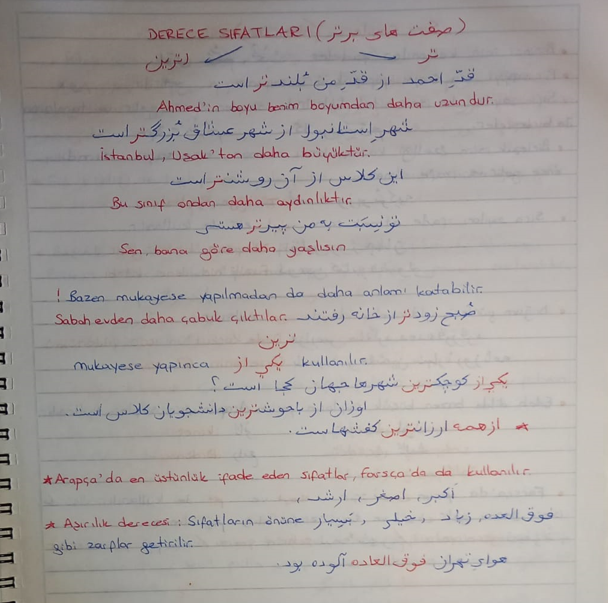 DERECE SIFATLARI (صفت های برتر)
تر ترین
قدِّ احمد از قدِّ من بُلندتر است
Ahmed'in boyu benim boyumdan daha uzundur.
شهرِ استانبول از شهر عشاق بُزرگتر است
İstanbul, Uşak'tan daha büyüktür.
این کلاس از آن روشنتر است
Bu sınıf ondan daha aydınlıktır.
تو نِسبَت به من پیرتر هستی
Sen bana göre daha yaşlısın
! Bazen mukayese yapılmadan da daha anlamı katabilir.
Sabah evden daha çabuk çıktılar. صُبح زودتر از خانه رفتند
ترین
mukayese yapınca یکی از kullanılır.
یکی از کوچکترین شهرها جهان کجا است؟
اوزان از باهوشترین دانشجویان کلاس است.
* از همه ارزانترین کفشهاست.
* Arapça'da en üstünlük ifade eden sıfatlar, farsça'da da kullanılır.
اَکبر، اصغر، ارشد،
* Aşırılık derecesi: Sıfatların önüne بسیار, خیلی, زیاد, فوق العده
gibi zarflar getirilir.
هوای تهران فوق العاده آلوده بود.